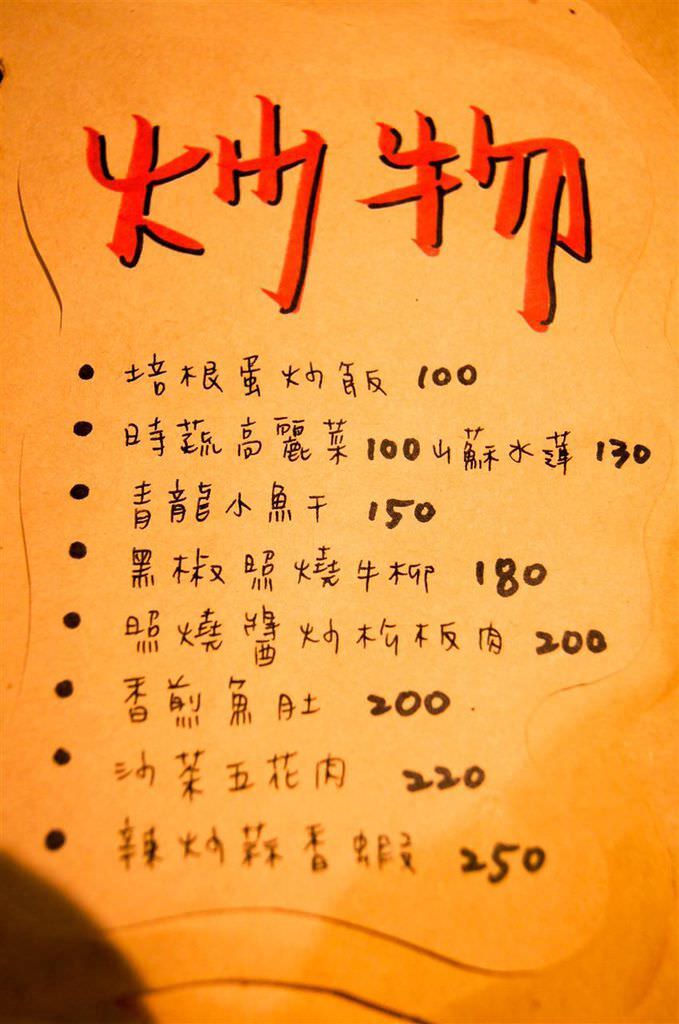 炒物
• 培根蛋炒飯 100
• 時蔬高麗菜 100 山蘇水蓮 130
• 青龍小魚干 150
• 黑椒照燒牛柳 180
• 照燒醬炒松板肉 200
• 香煎魚肚 200
• 沙茶五花肉 220
• 辣炒蒜香蝦 250